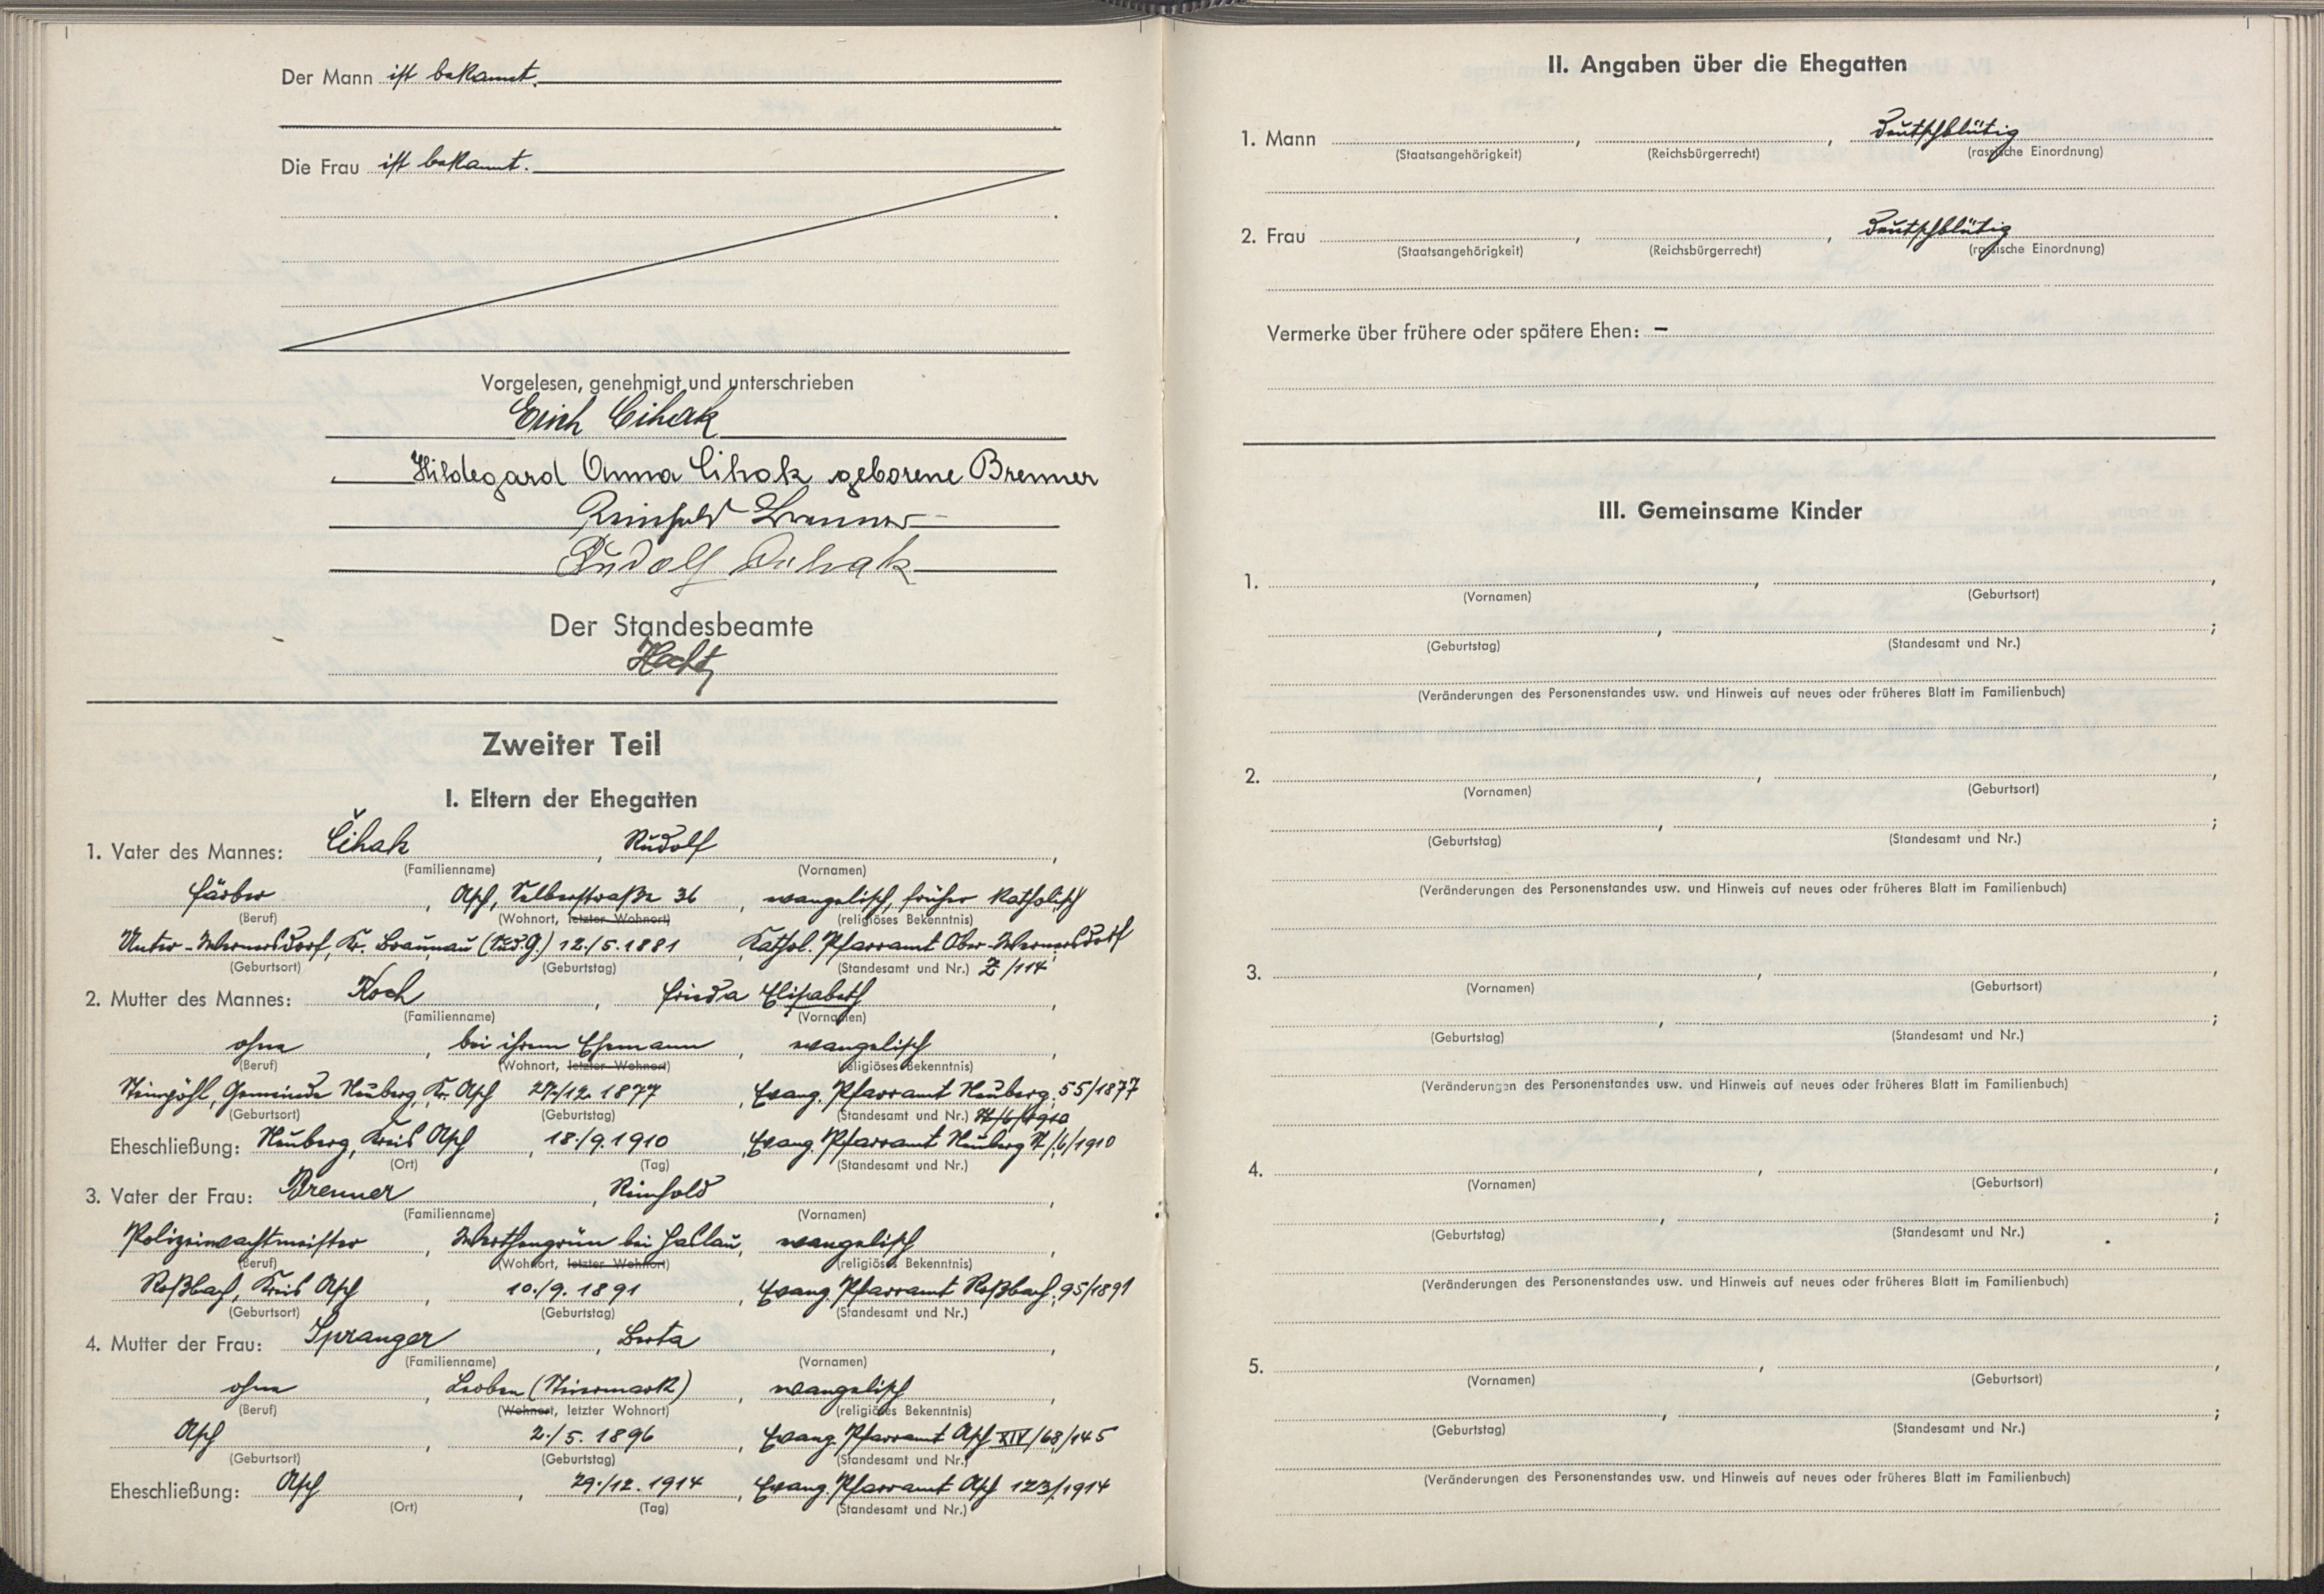 Der Mann ist bekannt.
Die Frau ist bekannt.
Vorgelesen, genehmigt und unterschrieben
Erich Cihak
Hildegard Anna Cihak geborene Brenner
Reinhold Brenner
Rudolf Cihak
Der Standesbeamte
Hecht
Zweiter Teil
I. Eltern der Ehegatten
1. Vater des Mannes: Čihak, Rudolf,
(Familienname) (Vornamen)
Färber, Asch, Selberstraße 36, evangelisch, früher katholisch
(Beruf) (Wohnort, letzter Wohnort) (religiöses Bekenntnis)
Unter-Wernersdorf, Kr. Braunau (Sud.G.) 12./5.1881, Kathol. Pfarramt Ober-Wernersdorf
(Geburtsort) (Geburtstag) (Standesamt und Nr.) Z/114
2. Mutter des Mannes: Koch, Frieda Elisabeth,
(Familienname) (Vornamen)
ohne, bei ihrem Ehemann, evangelisch,
(Beruf) (Wohnort, letzter Wohnort) (religiöses Bekenntnis)
Steinpöhl, Gemeinde Neuberg, Kr. Asch 27./12.1877, Evang. Pfarramt Neuberg, 55/1877
(Geburtsort) (Geburtstag) (Standesamt und Nr.)
Eheschließung: Neuberg, Kreis Asch, 18./9.1910, Evang. Pfarramt Neuberg N/6/1910
(Ort) (Tag) (Standesamt und Nr.)
3. Vater der Frau: Brenner, Reinhold,
(Familienname) (Vornamen)
Polizeiwachtmeister, bei Haslau, evangelisch,
(Beruf) (Wohnort, letzter Wohnort) (religiöses Bekenntnis)
Roßbach, Kreis Asch, 10./9.1891, Evang. Pfarramt Roßbach, 95/1891
(Geburtsort) (Geburtstag) (Standesamt und Nr.)
4. Mutter der Frau: Spranger, Berta,
(Familienname) (Vornamen)
ohne, Leoben (Steiermark), evangelisch,
(Beruf) (Wohnort, letzter Wohnort) (religiöses Bekenntnis)
Asch, 2./5.1896, Evang. Pfarramt Asch XIV/68/145
(Geburtsort) (Geburtstag) (Standesamt und Nr.)
Eheschließung: Asch, 29./12.1914, Evang. Pfarramt Asch 123/1914
(Ort) (Tag) (Standesamt und Nr.)
II. Angaben über die Ehegatten
1. Mann , , deutschblütig
(Staatsangehörigkeit) (Reichsbürgerrecht) (rassische Einordnung)
2. Frau , , deutschblütig
(Staatsangehörigkeit) (Reichsbürgerrecht) (rassische Einordnung)
Vermerke über frühere oder spätere Ehen: –
III. Gemeinsame Kinder
1. , ,
(Vornamen) (Geburtsort)
, ;
(Geburtstag) (Standesamt und Nr.)
(Veränderungen des Personenstandes usw. und Hinweis auf neues oder früheres Blatt im Familienbuch)
2. , ,
(Vornamen) (Geburtsort)
, ;
(Geburtstag) (Standesamt und Nr.)
(Veränderungen des Personenstandes usw. und Hinweis auf neues oder früheres Blatt im Familienbuch)
3. , ,
(Vornamen) (Geburtsort)
, ;
(Geburtstag) (Standesamt und Nr.)
(Veränderungen des Personenstandes usw. und Hinweis auf neues oder früheres Blatt im Familienbuch)
4. , ,
(Vornamen) (Geburtsort)
, ;
(Geburtstag) (Standesamt und Nr.)
(Veränderungen des Personenstandes usw. und Hinweis auf neues oder früheres Blatt im Familienbuch)
5. , ,
(Vornamen) (Geburtsort)
, ;
(Geburtstag) (Standesamt und Nr.)
(Veränderungen des Personenstandes usw. und Hinweis auf neues oder früheres Blatt im Familienbuch)